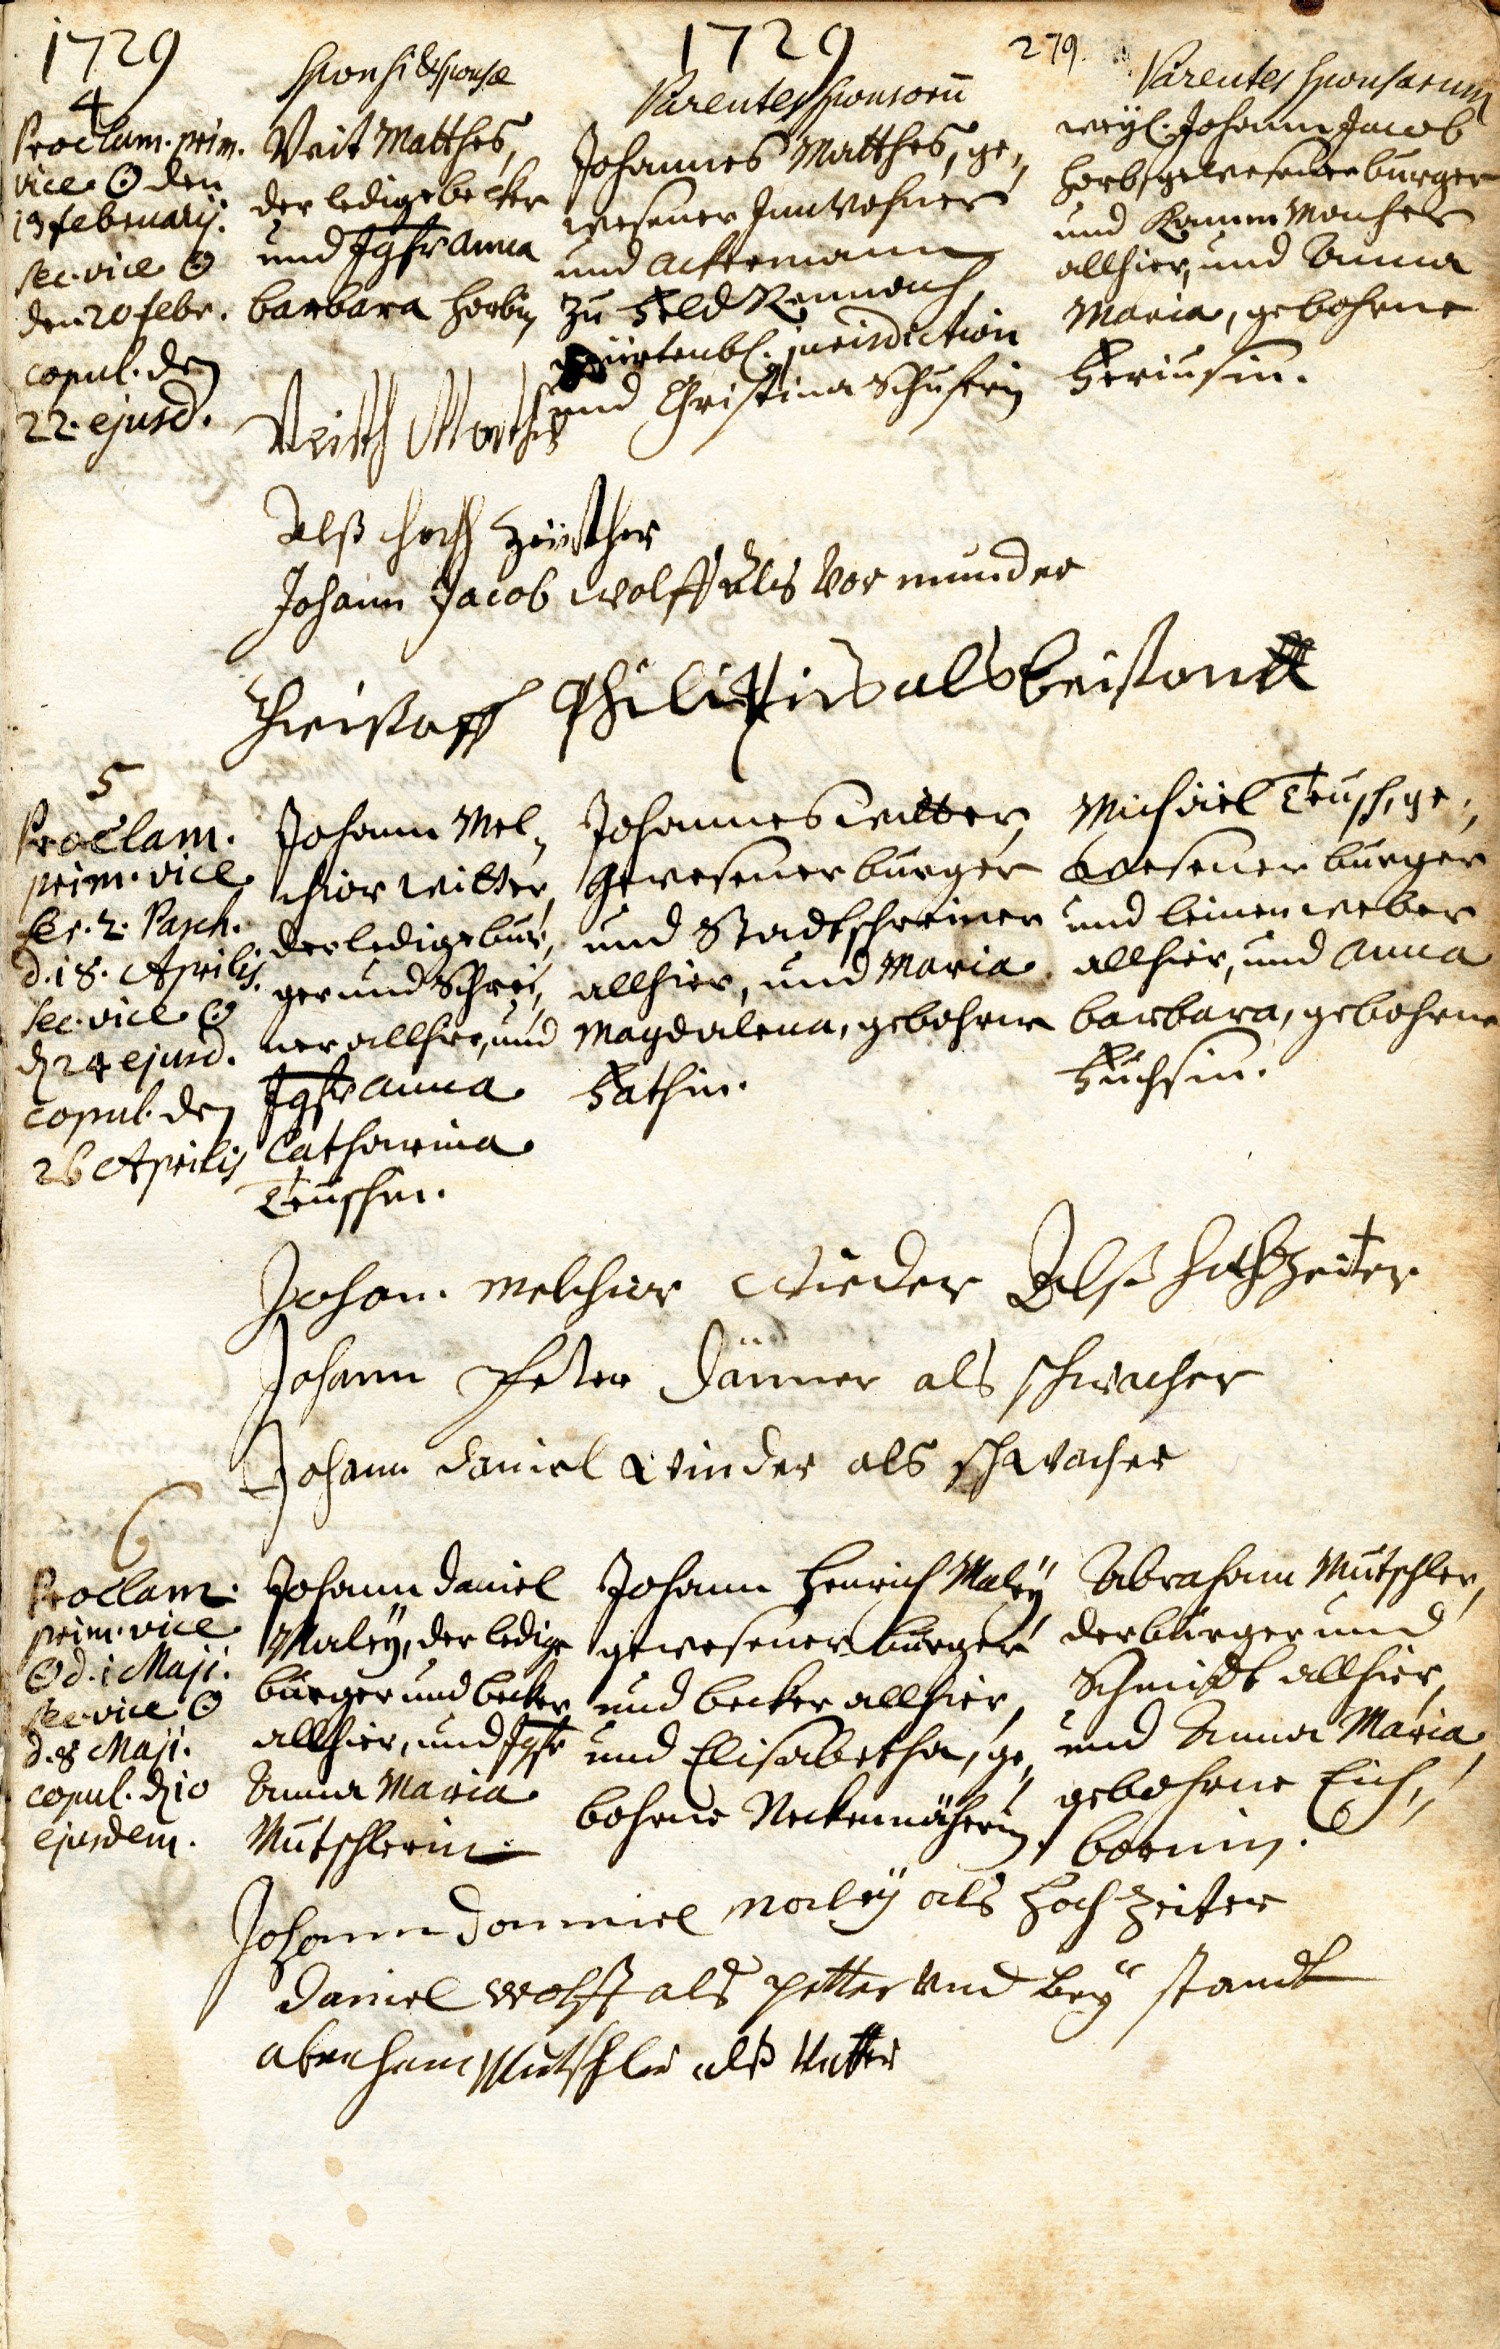 1729
1729
279.
Sponsi & Sponsæ
Parentes Sponsorū
Parentes Sponsarum
4
Proclam. prim.
vice ☉ den
13 februarij.
sec. vice ☉
den 20 febr.
copul. den
22. ejusd.
Veit Matthes,
der ledige becker
und Jgfr Anna
barbara Horbin
Johannes Matthes, ge„
wesener Innwohner
und Ackermann
zu Feld Rennach
Würtenbl. jurisdiction
und Christina Schusterin
weyl. Johann Jacob
Horb, gewesener burger
und Kammmacher
allhier, und Anna
Maria, gebohrne
Veith Mathes
Alß Hochzeither
Johann Jacob Wolff als Vormunder
Christoff Philippis als beistand
5
Proclam.
prim. vice
fer. 2. Pasch.
d. 18. Aprilis.
sec. vice ☉
d 24 ejusd.
copul. den
26 Aprilis
Johann Mel„
chior Witter,
der ledige bur„
ger und Schrei„
ner allhier, und
Jgfr Anna
Catharina
Teuschin.
Johannes Witter,
gewesener burger
und Stadtschreiner
allhier, und Maria
Magdalena, gebohrne
Fathin.
Michael Teusch, ge„
wesener burger
und leinenweber
allhier, und Anna
barbara, gebohrne
Fuchsin.
Johan. Melchior Wieder Alß Hochzeiter
Johann Peter Dänner als schwacher
Johann Daniel Winder als schwacher
6
Proclam.
prim. vice
☉ d. 1 Maji.
sec. vice ☉
d. 8 Maji.
copul. d 10
ejusdem.
Johann Daniel
Maleÿ, der ledige
burger und becker
allhier, und Jgfr
Anna Maria
Mutschlerin
Johann Henrich Maleÿ
gewesener burger
und becker allhier,
und Elisabetha, ge„
bohrne Neckennäherin.
Abraham Mutschler,
der burger und
Schmidt allhier,
und Anna Maria,
gebohrne Eich„
bornin.
Johann Danniel Maleÿ als Hochzeiter
Daniel Wolff als petter und beÿ standt
Abraham Mutschler alß Vatter